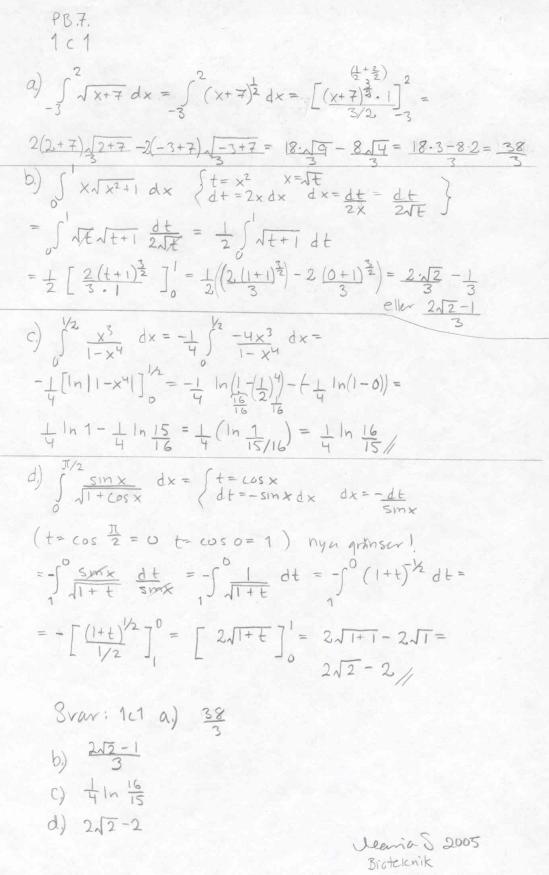 PB.7.
1c1
a) ∫_{-3}^{2} √(x+7) dx = ∫_{-3}^{2} (x+7)^{1/2} dx = [ (x+7)^{3/2} · 1 / (3/2) ]_{-3}^{2} = (1/2 + 2/2)
2(2+7)√(2+7)/3 - 2(-3+7)√(-3+7)/3 = 18·√9/3 - 8√4/3 = (18·3 - 8·2)/3 = 38/3
b) ∫_0^1 x√(x²+1) dx { t = x² x = √t
dt = 2x dx dx = dt/2x = dt/2√t }
= ∫_0^1 √t √(t+1) dt/2√t = 1/2 ∫_0^1 √(t+1) dt
= 1/2 [ 2(t+1)^{3/2} / 3·1 ]_0^1 = 1/2 ((2(1+1)^{3/2})/3 - 2(0+1)^{3/2}/3) = 2·√2/3 - 1/3
eller (2√2-1)/3
c) ∫_0^{1/2} x³/(1-x⁴) dx = -1/4 ∫_0^{1/2} -4x³/(1-x⁴) dx =
-1/4 [ln|1-x⁴|]_0^{1/2} = -1/4 ln(1-(1/2)⁴) - (-1/4 ln(1-0)) = 16/16 /16
1/4 ln 1 - 1/4 ln 15/16 = 1/4 (ln 1/(15/16)) = 1/4 ln 16/15 //
d) ∫_0^{π/2} sinx/√(1+cosx) dx = { t = cosx
dt = -sinx dx dx = -dt/sinx
(t = cos π/2 = 0 t = cos 0 = 1) nya gränser!
= -∫_1^0 sinx/√(1+t) dt/sinx = -∫_1^0 1/√(1+t) dt = -∫_1^0 (1+t)^{-1/2} dt =
= -[ (1+t)^{1/2} / (1/2) ]_1^0 = [ 2√(1+t) ]_0^1 = 2√(1+1) - 2√1 =
2√2 - 2 //
Svar: 1c1 a) 38/3
b) (2√2-1)/3
c) 1/4 ln 16/15
d) 2√2-2
Maria S 2005
Bioteknik